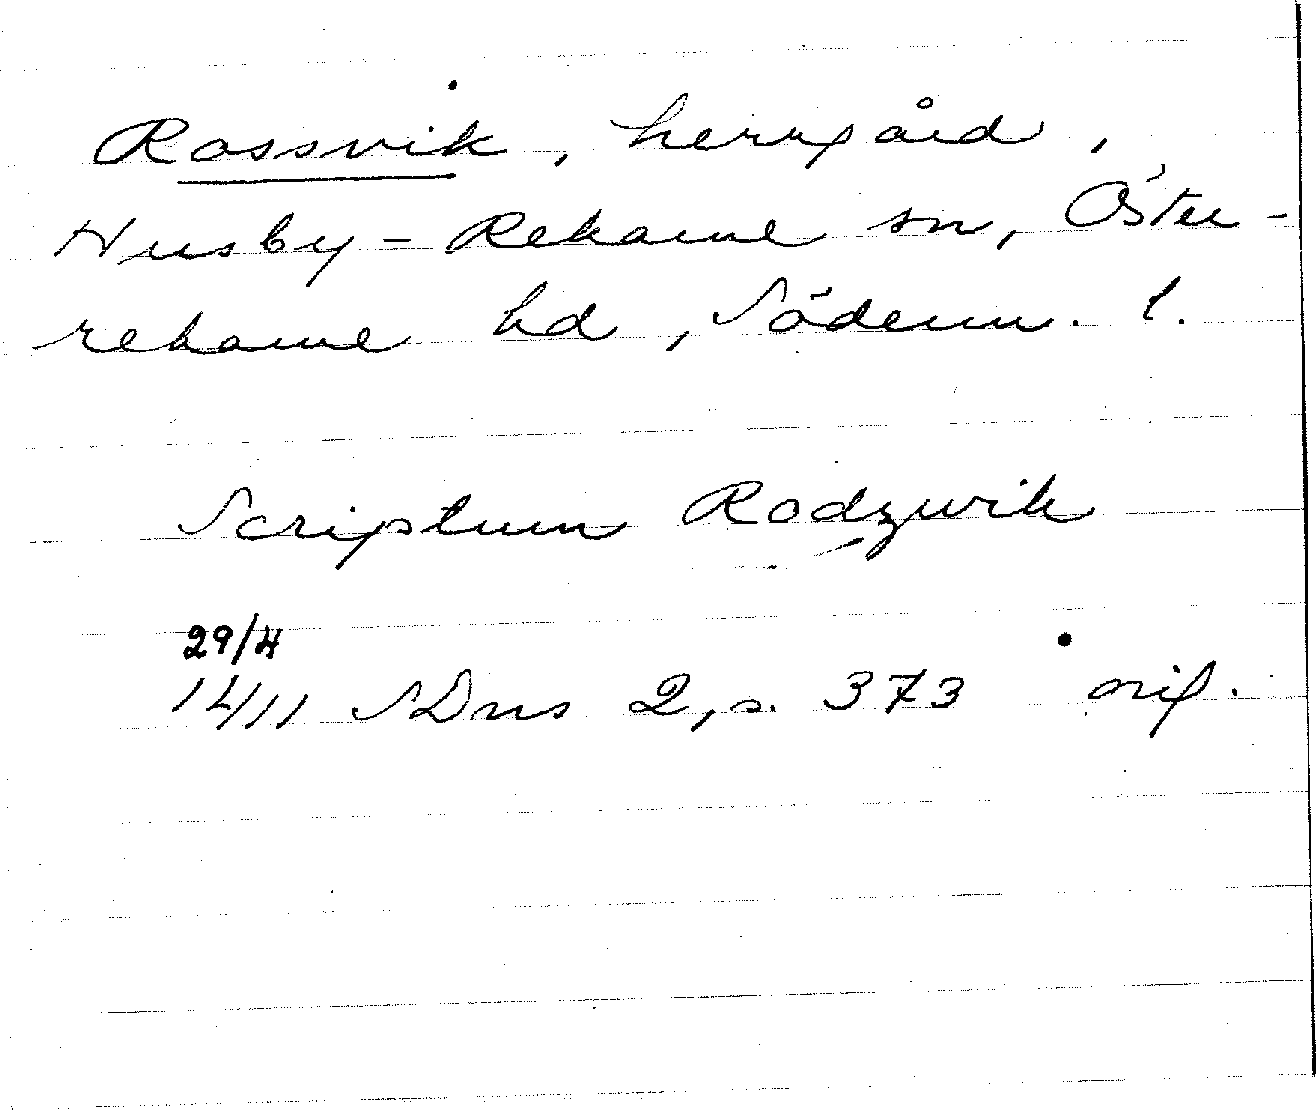 Rossvik, herrgård,
Husby-Rekarne sn, Öster-
rekarne hd, Söderm. l.
Scriptum Rodzwik
29/4
1411 SDns 2, s. 373 orig.